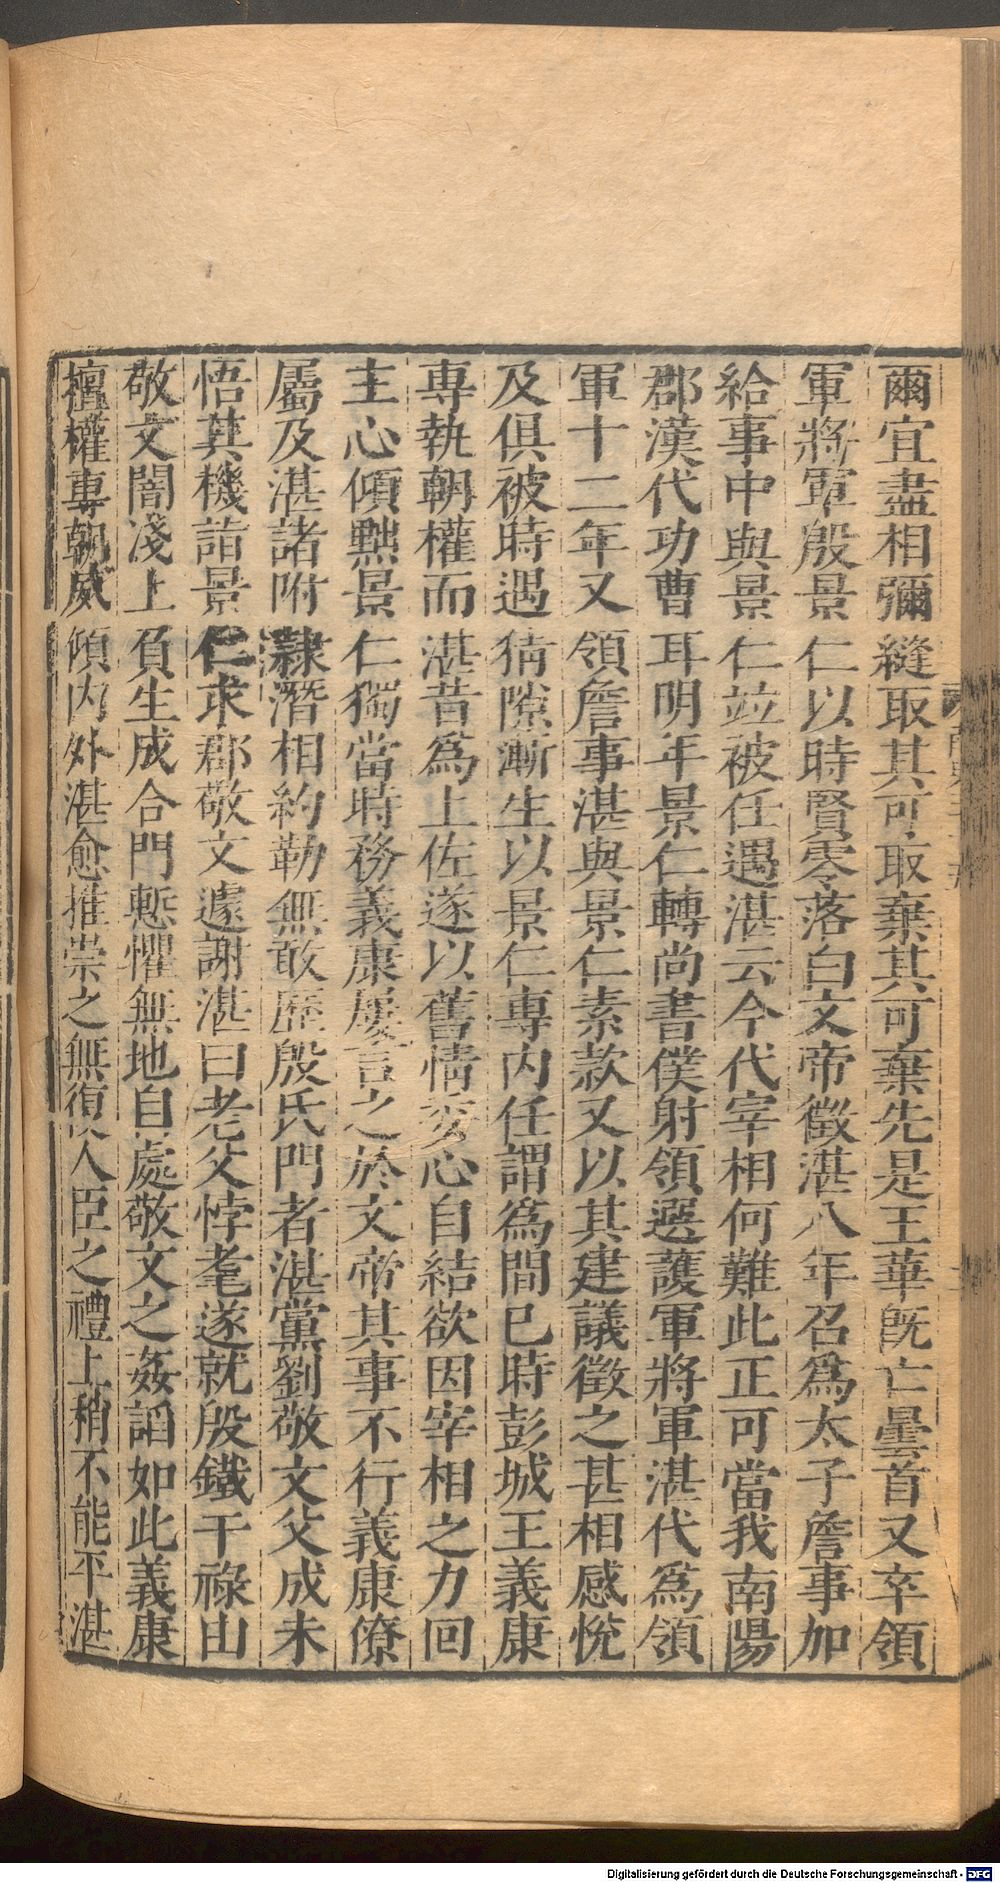 爾宜盡相彌縫取其可取棄其可棄先是王華既亡曇首又卒領
軍將軍殷景仁以時賢零落白文帝徵湛八年召爲太子詹事加
給事中與景仁竝被任遇湛云今代宰相何難此正可當我南陽
郡漢代功曹耳明年景仁轉尚書僕射領選護軍將軍湛代爲領
軍十二年又領詹事湛與景仁素款又以其建議徵之甚相感悅
及俱被時遇猜隙漸生以景仁專內任謂爲間已時彭城王義康
專執朝權而湛昔爲上佐遂以舊情委心自結欲因宰相之力回
主心傾黜景仁獨當時務義康屢言之於文帝其事不行義康僚
屬及湛諸附隸潛相約勒無敢歷殷氏門者湛黨劉敬文父成未
悟其機詣景仁求郡敬文遽謝湛曰老父悖耄遂就殷鐵干祿由
敬文闇淺上負生成合門慙懼無地自處敬文之姦諂如此義康
擅權專朝威傾內外湛愈推崇之無復人臣之禮上稍不能平湛
Digitalisierung gefördert durch die Deutsche Forschungsgemeinschaft - DFG